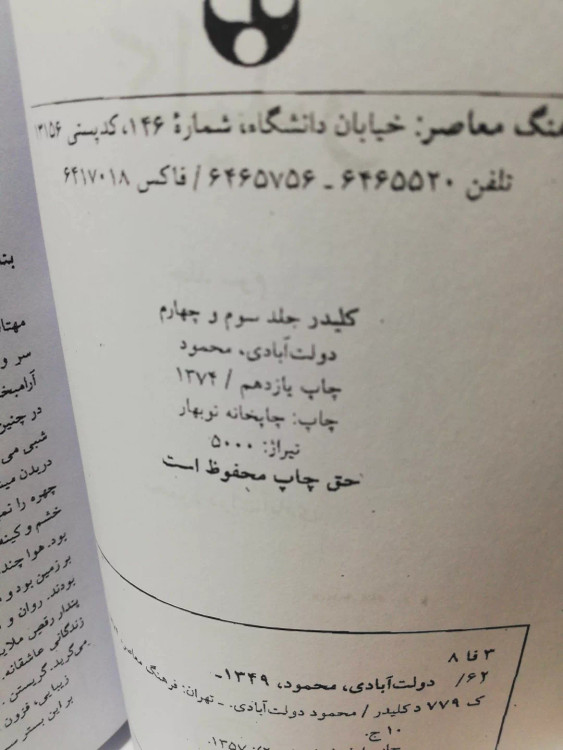 هنگ معاصر: خیابان دانشگاه، شمارهٔ ۱۴۶، کدپستی ۱۳۱۵۶
تلفن ۶۴۶۵۵۲۰ ـ ۶۴۶۵۷۵۶ / فاکس ۶۴۱۷۰۱۸
کلیدر جلد سوم و چهارم
دولت‌آبادی، محمود
چاپ یازدهم / ۱۳۷۴
چاپ: چاپخانه نوبهار
تیراژ: ۵۰۰۰
حق چاپ محفوظ است
۳ فا ۸
۶۲/ دولت‌آبادی، محمود، ۱۳۴۹ـ
ک ۷۷۹ د کلیدر / محمود دولت‌آبادی. ـ تهران: فرهنگ معاصر،
۱۰ ج.
مهتا
سر و
در چنین
شبی می
چهره را نم
خشم و کینه
بود. هوا چند
بر زمین بود و
بودند. روان و
پندار رقص ملا
زندگانی عاشقانه.
می‌گرید. گریستن
زیبایی، فزون
بر این بستر